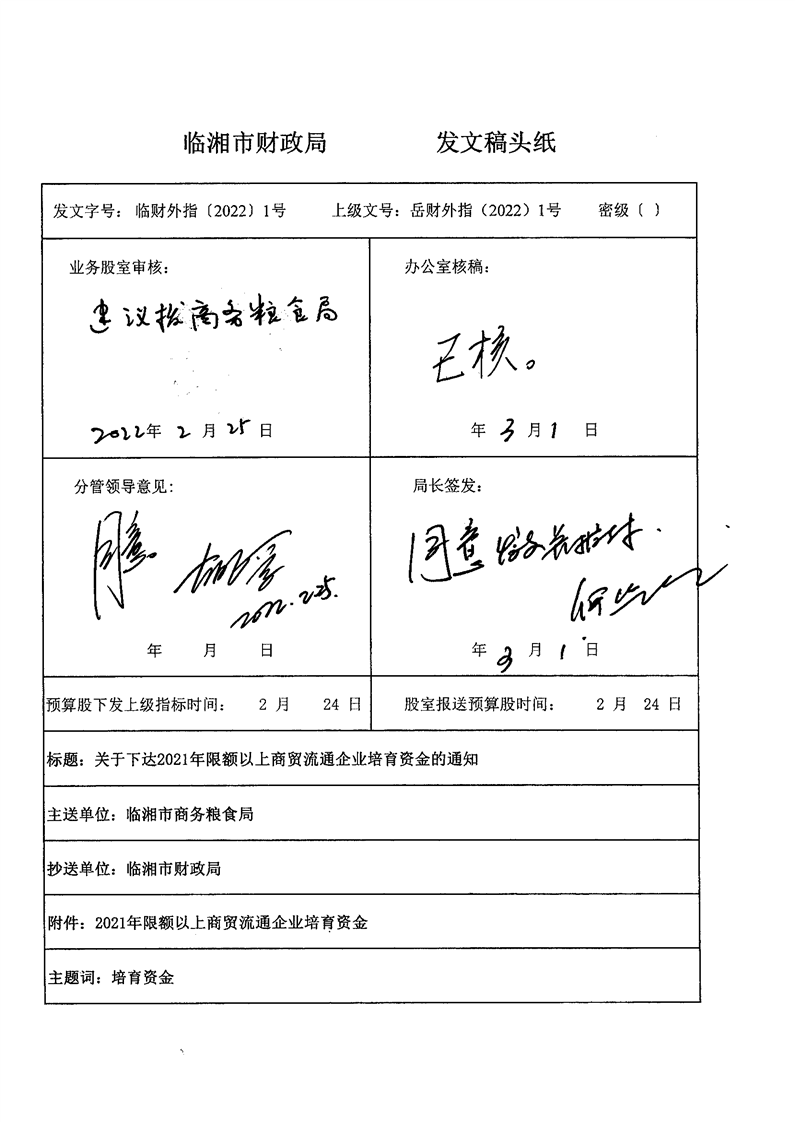 临湘市财政局 发文稿头纸
发文字号： 临财外指〔2022〕1号 上级文号：岳财外指（2022）1号 密级〔 〕
业务股室审核：
建议拨商务粮食局
2022年 2 月 25 日
办公室核稿：
已核。
年 3 月 1 日
分管领导意见：
同意。
2022.2.25.
年 月 日
局长签发：
同意
年 3 月 1 日
预算股下发上级指标时间： 2 月 24 日 股室报送预算股时间： 2 月 24 日
标题：关于下达2021年限额以上商贸流通企业培育资金的通知
主送单位：临湘市商务粮食局
抄送单位：临湘市财政局
附件：2021年限额以上商贸流通企业培育资金
主题词：培育资金